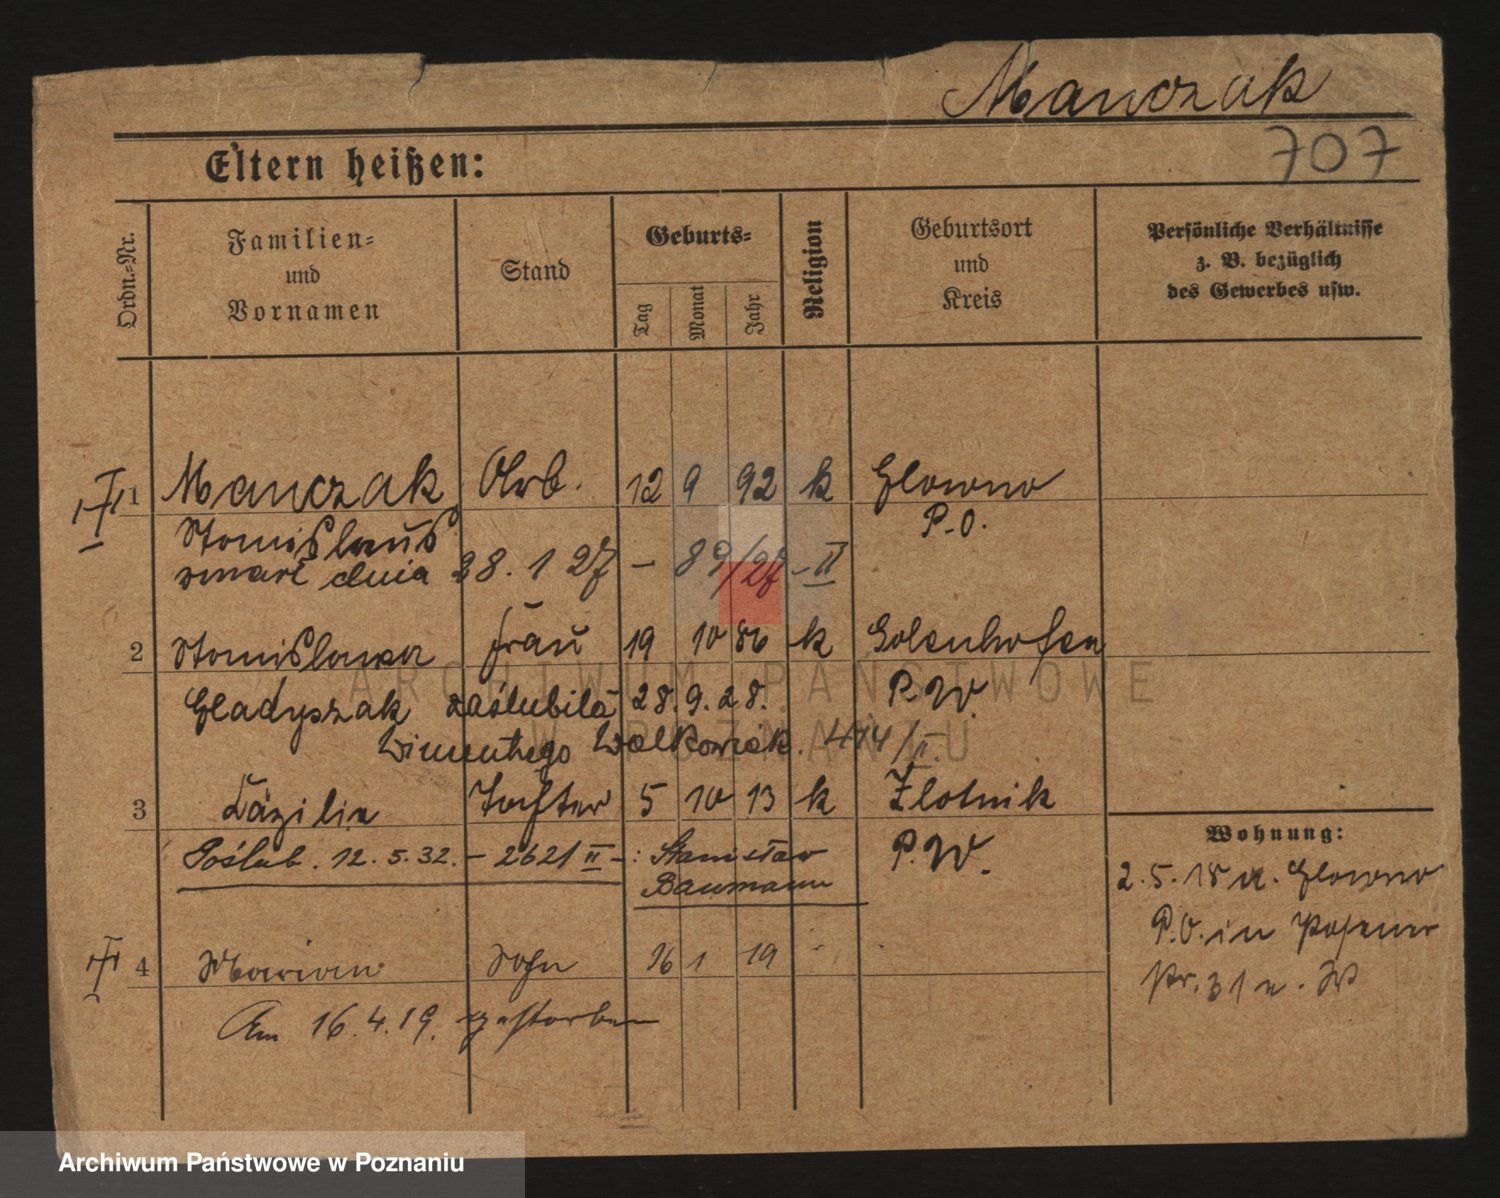 Manczak
707
Eltern heißen:
Ordn.-Nr.
Familien-
und
Vornamen
Stand
Geburts-
Tag
Monat
Jahr
Religion
Geburtsort
und
Kreis
Persönliche Verhältnisse
z. B. bezüglich
des Gewerbes usw.
1 Manczak Arb. 12 9 92 k Glowno
Stanislaus P.O.
zmarł dnia 28. 1 27 – 89/27 – II
2 Stanislawa Frau 19 10 86 k Golenhofen
Gladyszak zaślubiła 28.9.28. P.W.
Wincentego Walkowiak. 474/II.
3 Cäzilia Tochter 5 10 13 k Zlotnik
Poślub. 12.5.32. – 2621 II – : Stanisław P.W.
Baumann
Wohnung:
2.5.18 v. Glowno
P.O. in Posener
4 Marian Sohn 16 1 19
Am 16.4.19. gestorben
ARCHIWUM PAŃSTWOWE
W POZNANIU
Archiwum Państwowe w Poznaniu